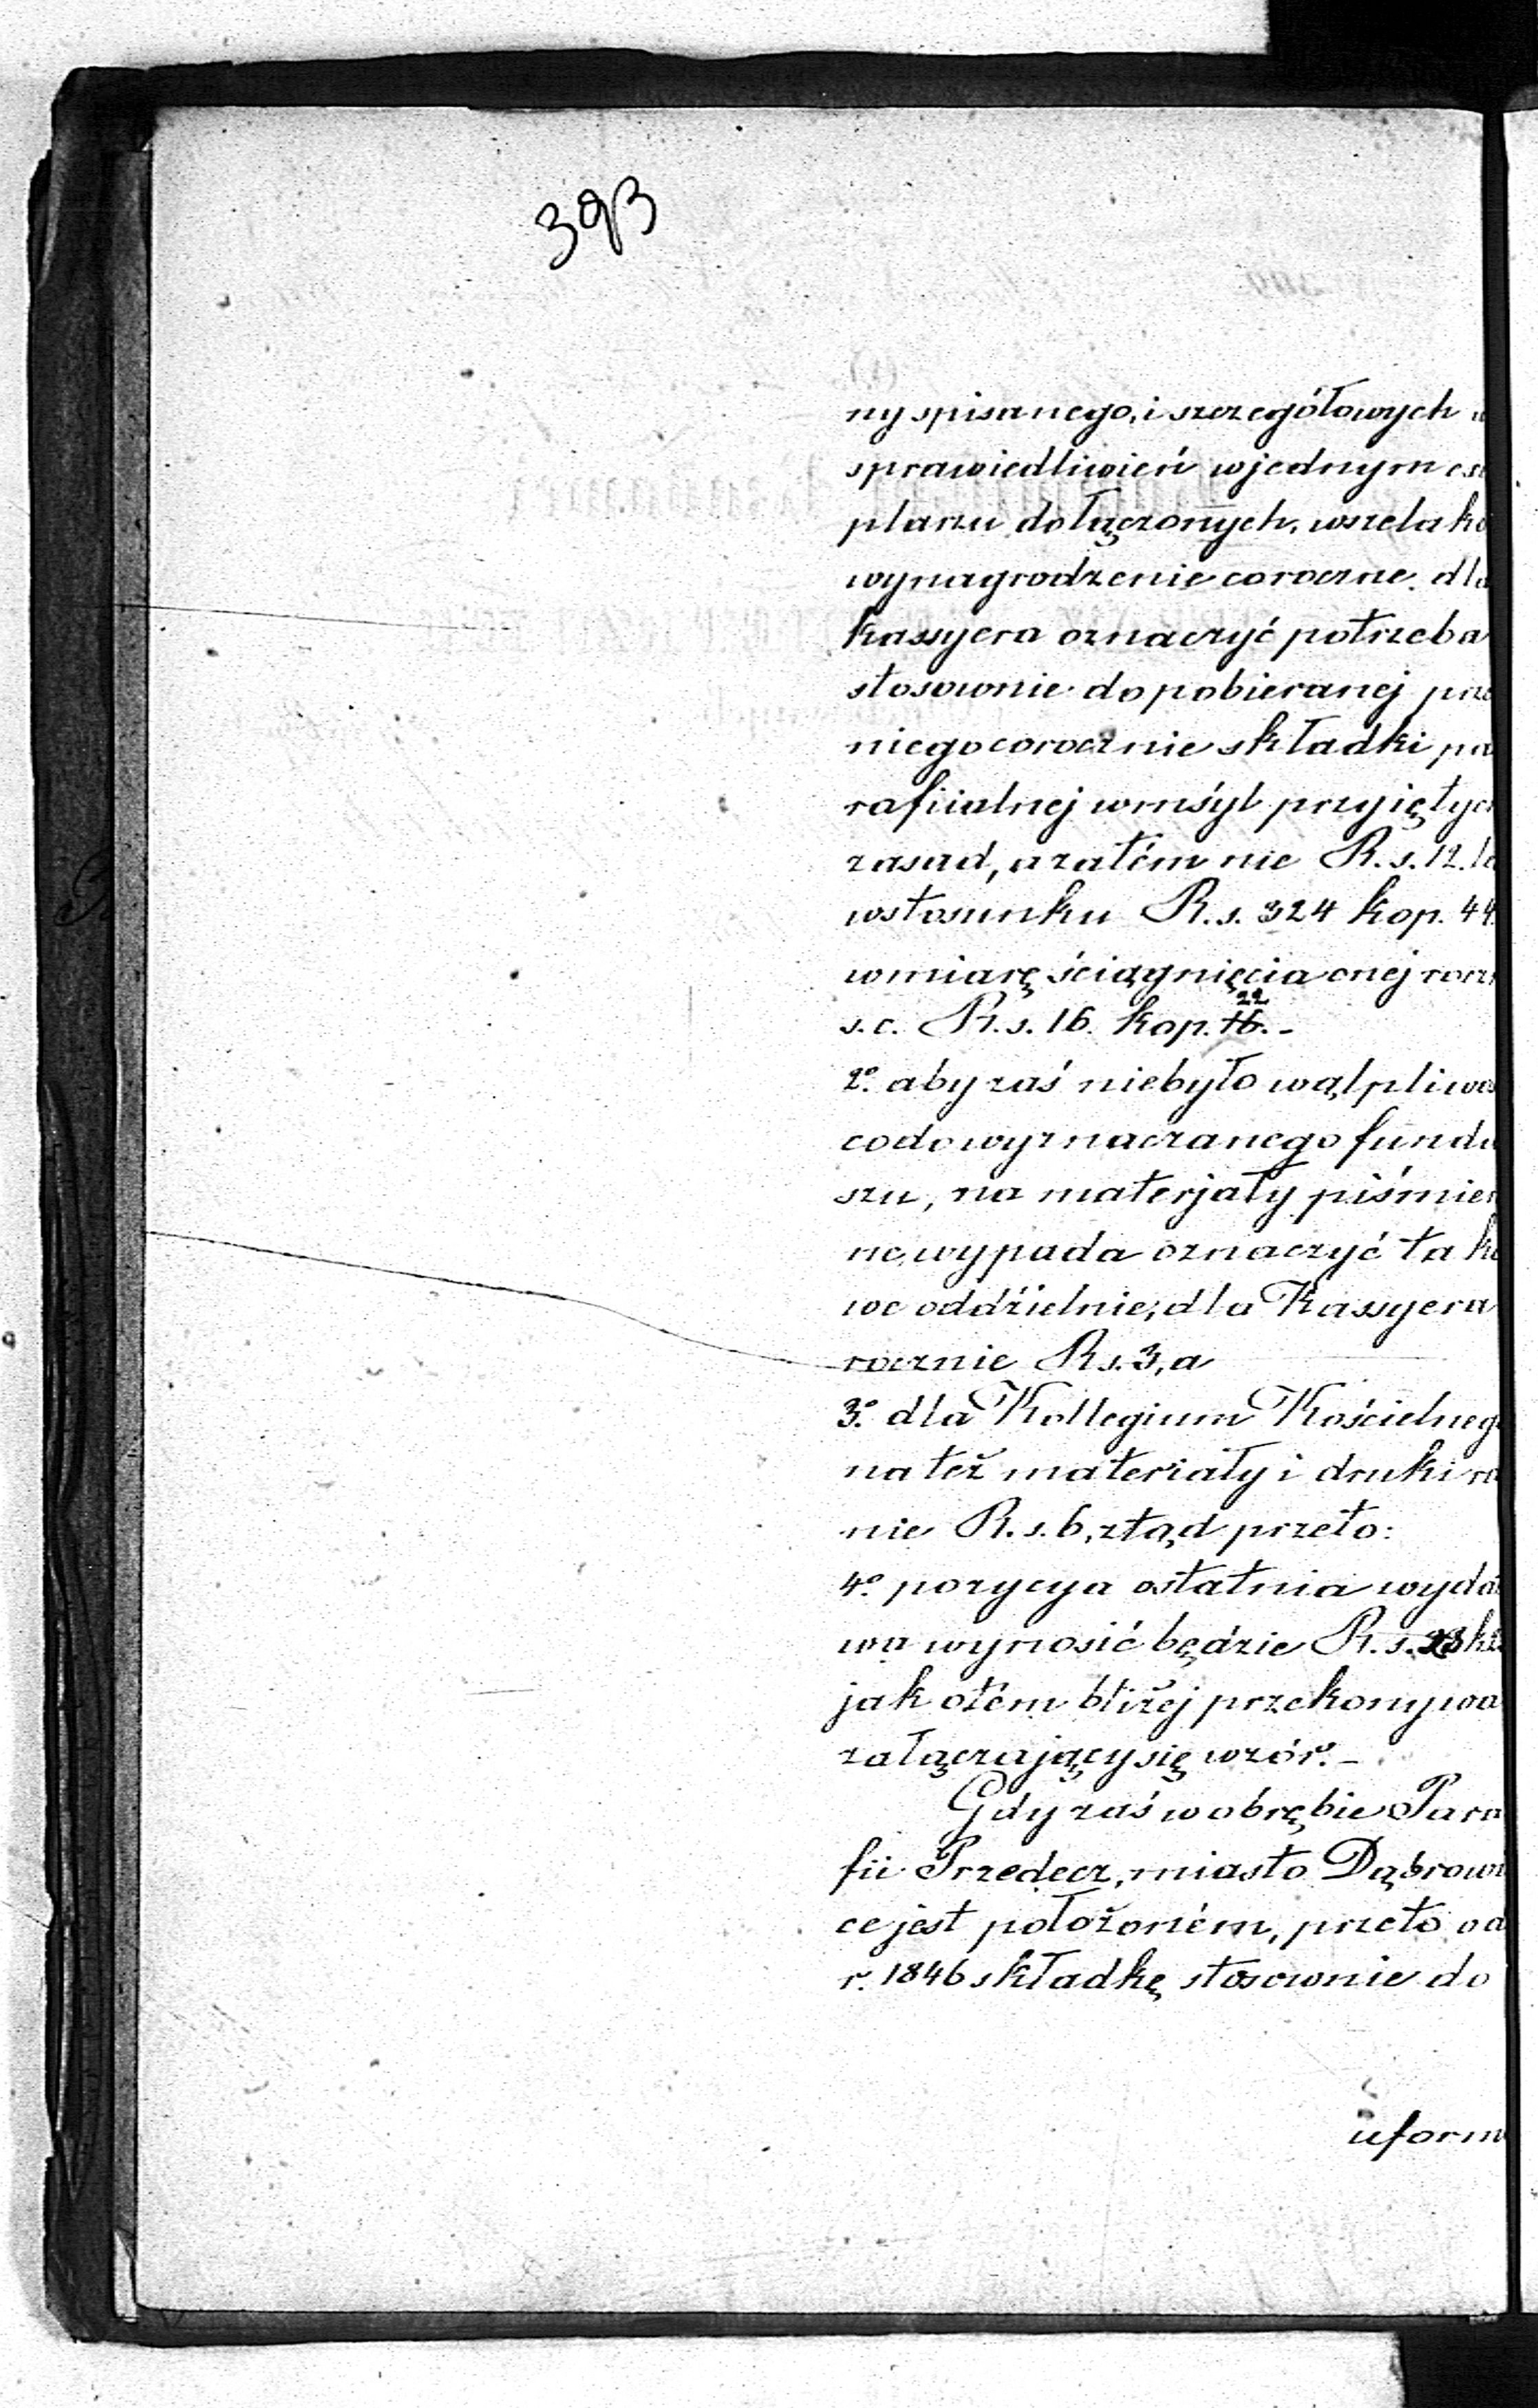 393
ny spisanego, i szczegółowych
sprawiedliwień w jednym
plarzu dołączonych, wszelako
wynagrodzenie coroczne dla
kassyera oznaczyć potrzeba
stosownie do pobieranej prze
niego corocznie składki pa
rafiialnej w mśyl przyiętych
zasad, a zatém nie R.s. 12. le
w stosunku R.s. 324 kop. 44.
w miarę ściągnięcia onej
s.c. R.s. 16. kop. 16. 22 -
2o. aby zaś niebyło wątpliwoś
co do wyznaczanego fundu
szu, na materjały piśmien
ne, wypada oznaczyć tako
we oddźielnie, dla Kassyera
rocznie Rs. 3, a
3o. dla Kollegium Kościelnego
na też materiały i druki ro
nie R.s. 6, ztąd przeto:
4o. pozycya ostatnia wydat
wa wynosić będzie R.s.
jak o tém bliżej przekonywa
załączający się wzór. -
Gdy zaś w obrębie Para
fii Przedecz, miasto Dąbrowi
ce jest położoném, przeto od
r. 1846 składkę stosownie do
uform